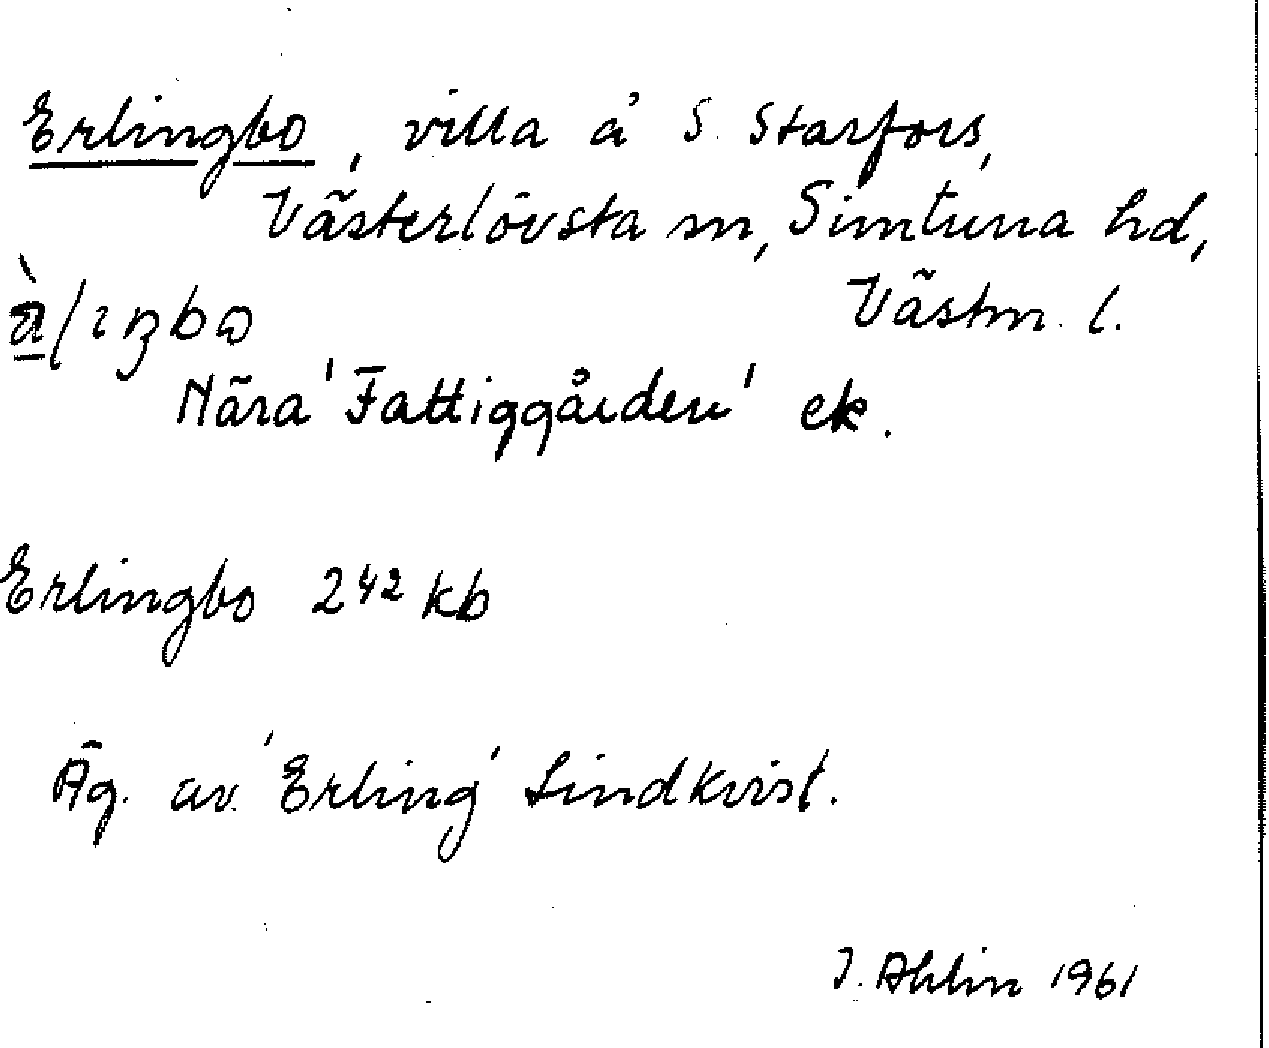 Erlingbo, villa å S. Starfors,
Västerlövsta sn, Simtuna hd,
Västm. l.
Nära 'Fattiggården' ek.
Erlingbo 2⁴² kb
Äg. av 'Erling' Lindkvist.
J. Ahlin 1961